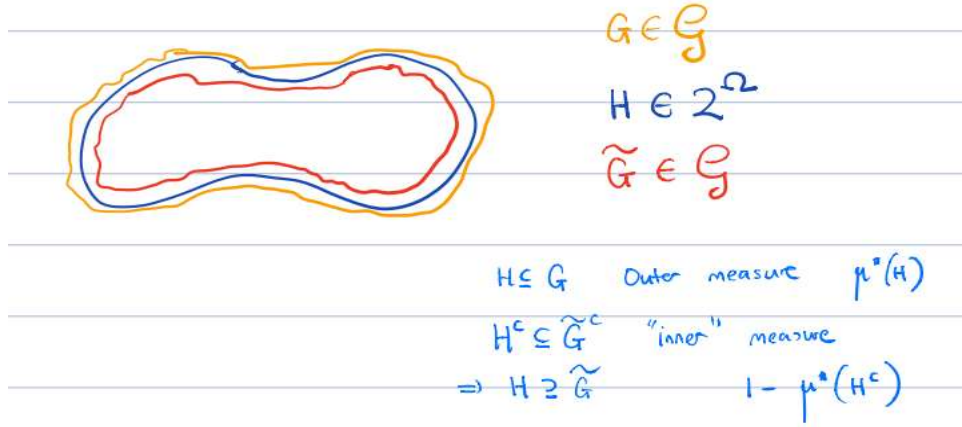 G ∈ 𝒢
H ∈ 2^Ω
G̃ ∈ 𝒢
H ⊆ G Outer measure μ*(H)
H^c ⊆ G̃^c "inner" measure
⇒ H ⊇ G̃ 1 - μ*(H^c)